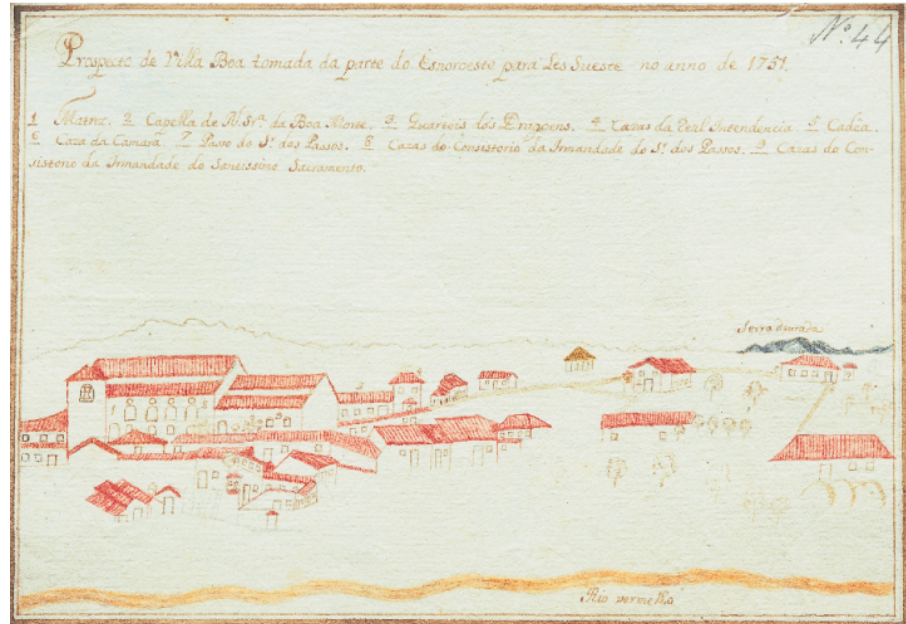 Nº 44
Prospecto de Villa Boa tomada da parte do Esnoroeste para Les Sueste no anno de 1751.
1 Matriz. 2 Capella de N. Srª. da Boa Morte. 3 Quarteis dos Dragoens. 4 Cazas da Real Intendencia 5 Cadêa.
6 Caza da Camara. 7 Passo do Sr. dos Passos. 8 Cazas do Consistorio da Irmandade do Sr. dos Passos. 9 Cazas do Con-
sistorio da Irmandade do Santissimo Sacramento.
Serra dourada
Rio vermelho